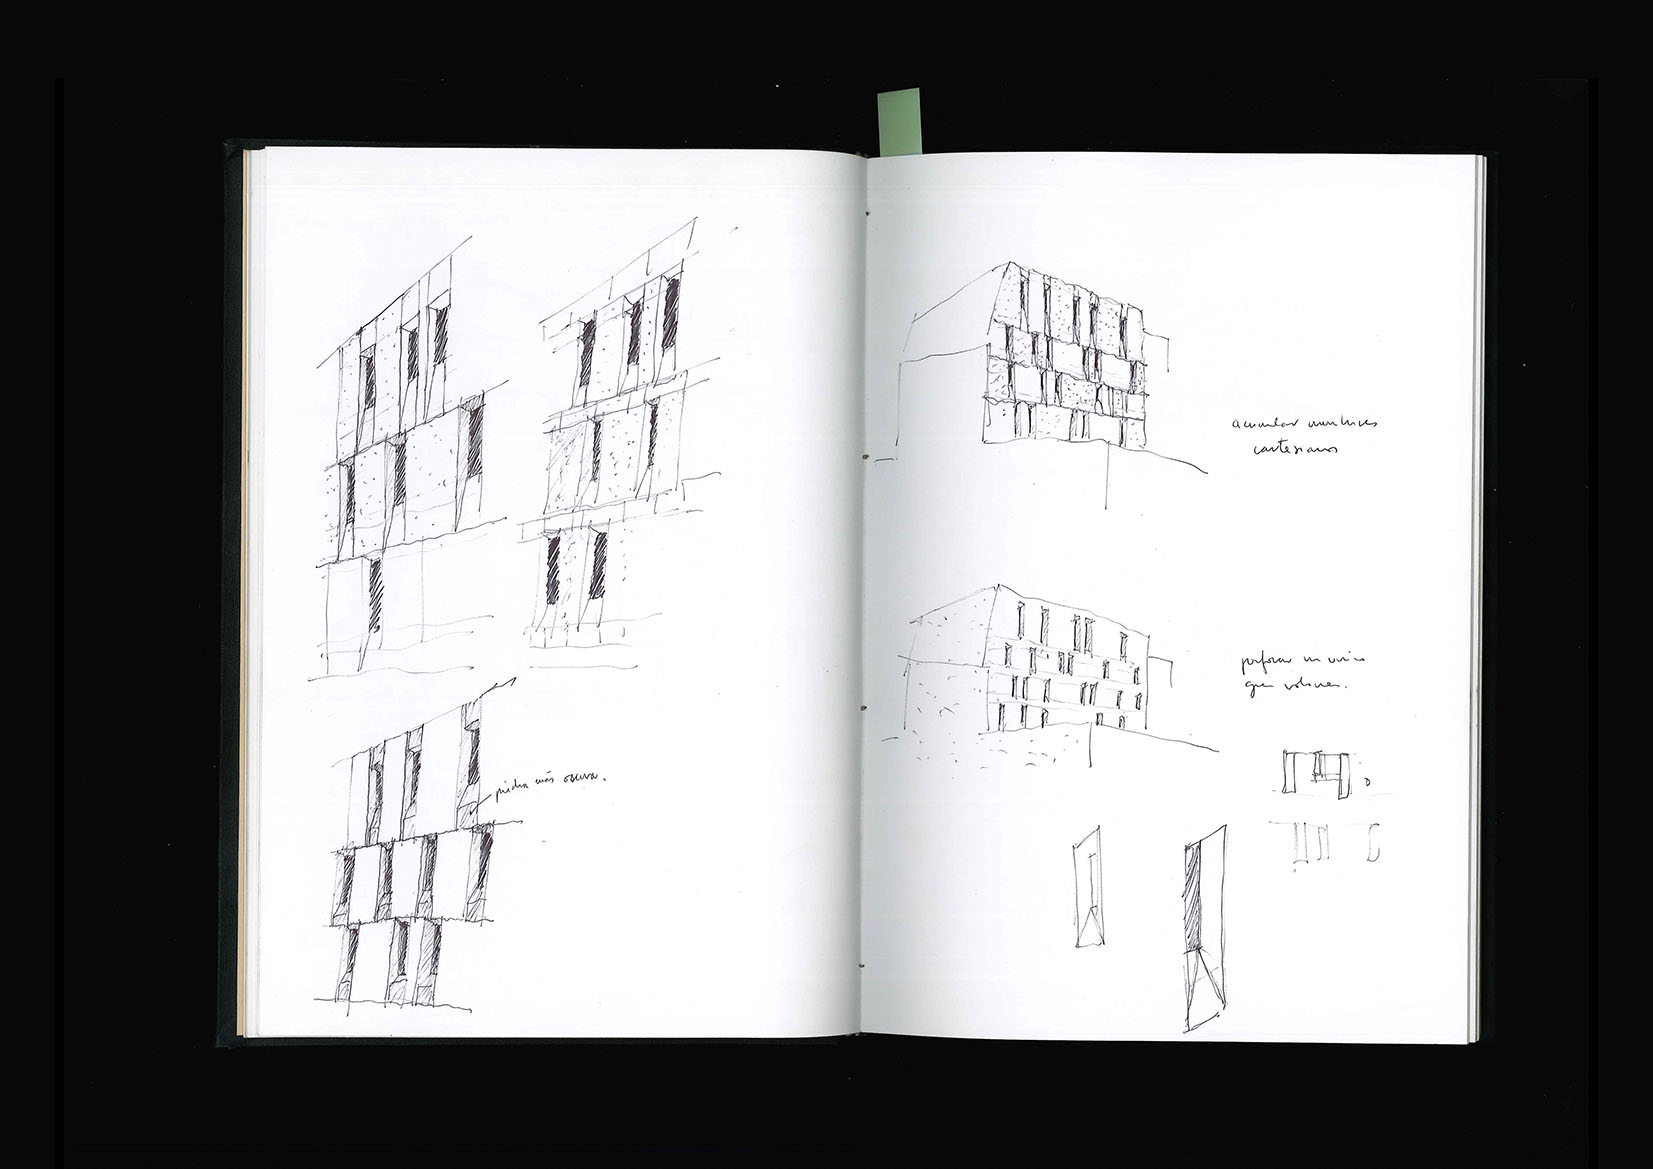 piedra más oscura.
acumular menhires
cartesianos
perforar un único
gran volumen.